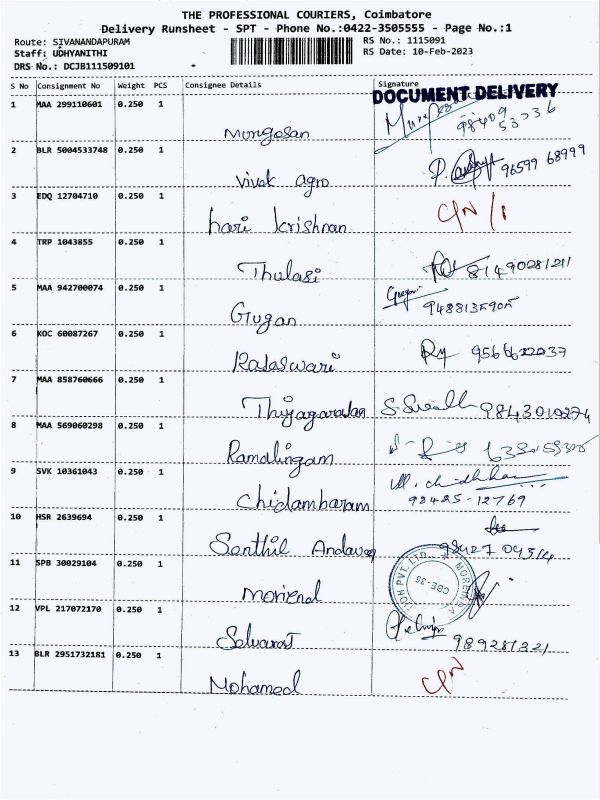 THE PROFESSIONAL COURIERS, Coimbatore
Delivery Runsheet - SPT - Phone No.:0422-3505555 - Page No.:1
Route: SIVANANDAPURAM RS No.: 1115091
Staff: UDHYANITHI RS Date: 10-Feb-2023
DRS No.: DCJB111509101
S No Consignment No Weight PCS Consignee Details Signature
DOCUMENT DELIVERY
1 MAA 299110601 0.250 1 98409
53336
Murgesan
2 BLR 5004533748 0.250 1 96599 68999
Vivek agro
3 EDQ 12704710 0.250 1
hari krishnan
4 TRP 1043855 0.250 1
Thulasi 81490281211
5 MAA 942700074 0.250 1
Gugan 9488135905
6 KOC 60087267 0.250 1
Rajeswari
7 MAA 858760666 0.250 1
Thijagarajan 9843010274
8 MAA 569060298 0.250 1
Ramalingam
9 SVK 10361043 0.250 1
Chidambaram 98425-12769
10 HSR 2639694 0.250 1
Senthil
11 SPB 30029104 0.250 1
CBE-35
12 VPL 217072170 0.250 1
Selvaraj 989281321
13 BLR 2951732181 0.250 1
Mohamed